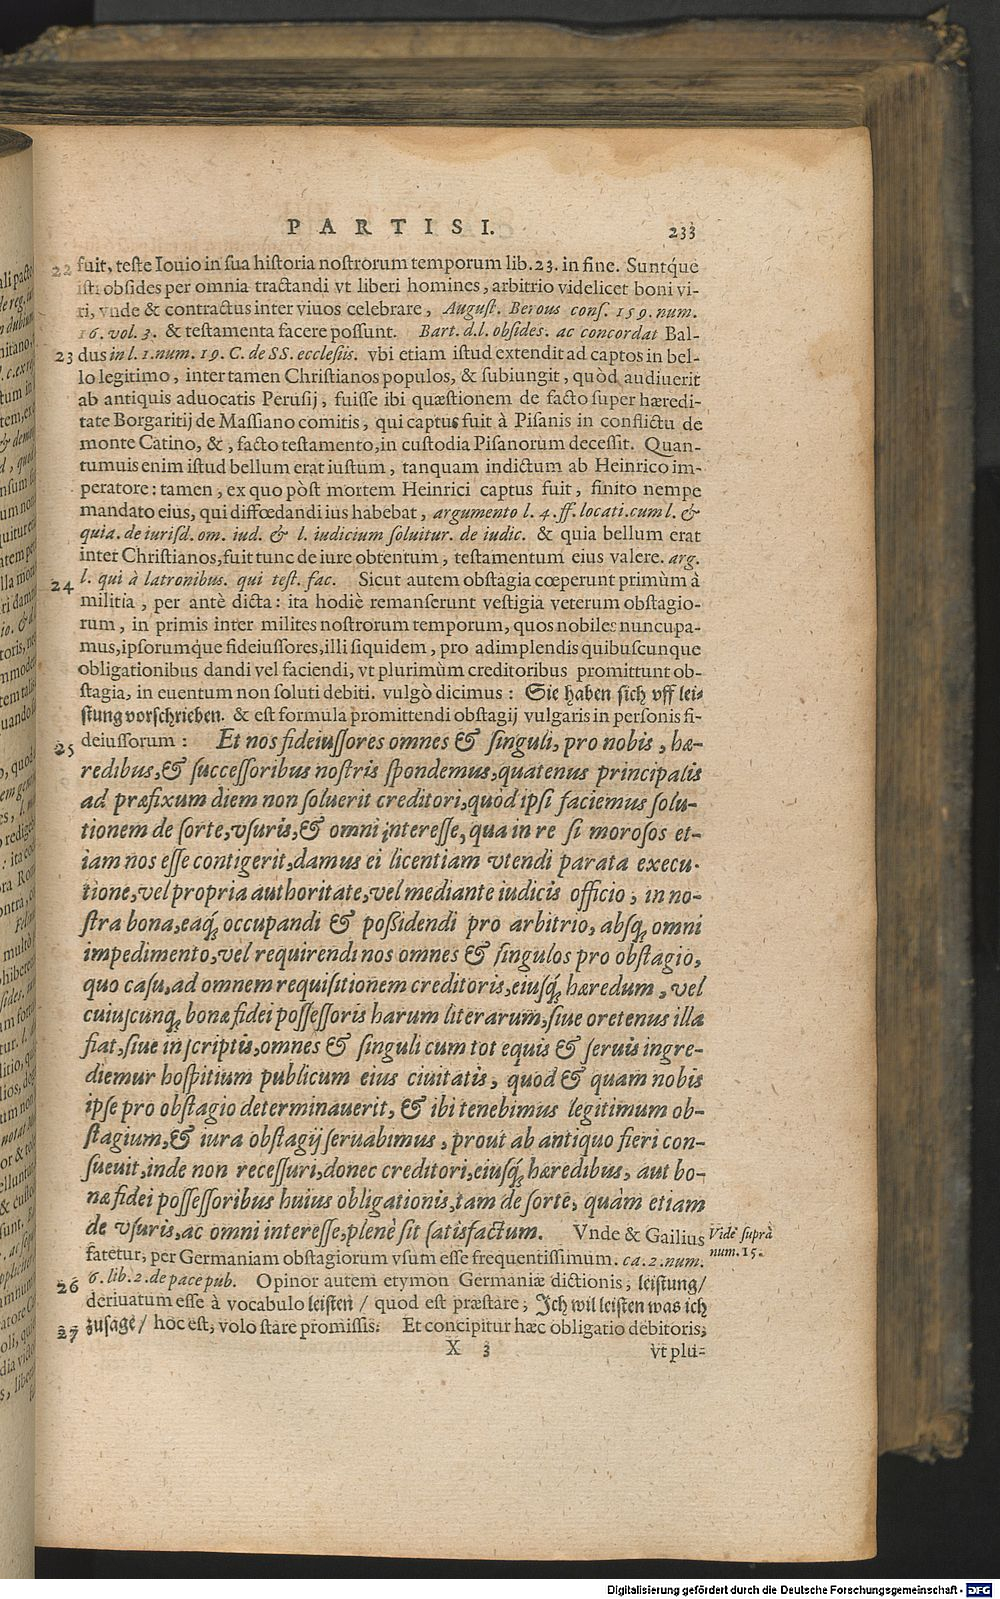 PARTIS I. 233
22 fuit, teste Iouio in sua historia nostrorum temporum lib. 23. in fine. Suntq́ue
isti obsides per omnia tractandi vt liberi homines, arbitrio videlicet boni vi-
ri, vnde & contractus inter viuos celebrare, August. Berous cons. 159. num.
16. vol. 3. & testamenta facere possunt. Bart. d. l. obsides. ac concordat Bal-
23 dus in l. 1. num. 19. C. de SS. ecclesiis. vbi etiam istud extendit ad captos in bel-
lo legitimo, inter tamen Christianos populos, & subiungit, quòd audiuerit
ab antiquis aduocatis Perusij, fuisse ibi quæstionem de facto super hæredi-
tate Borgaritij de Massiano comitis, qui captus fuit à Pisanis in conflictu de
monte Catino, &, facto testamento, in custodia Pisanorum decessit. Quan-
tumuis enim istud bellum erat iustum, tanquam indictum ab Heinrico im-
peratore: tamen, ex quo pòst mortem Heinrici captus fuit, finito nempe
mandato eius, qui diffœdandi ius habebat, argumento l. 4. ff. locati. cum l. &
quia. de iurisd. om. iud. & l. iudicium soluitur. de iudic. & quia bellum erat
inter Christianos, fuit tunc de iure obtentum, testamentum eius valere. arg.
24 l. qui à latronibus. qui test. fac. Sicut autem obstagia cœperunt primùm à
militia, per antè dicta: ita hodiè remanserunt vestigia veterum obstagio-
rum, in primis inter milites nostrorum temporum, quos nobiles nuncupa-
mus, ipsorumq́ue fideiussores, illi siquidem, pro adimplendis quibuscunque
obligationibus dandi vel faciendi, vt plurimùm creditoribus promittunt ob-
stagia, in euentum non soluti debiti. vulgò dicimus: Sie haben sich vff lei-
stung vorschrieben. & est formula promittendi obstagij vulgaris in personis fi-
25 deiussorum: Et nos fideiussores omnes & singuli, pro nobis, hæ-
redibus, & successoribus nostris spondemus, quatenus principalis
ad præfixum diem non soluerit creditori, quòd ipsi faciemus solu-
tionem de sorte, vsuris, & omni interesse, qua in re si morosos et-
iam nos esse contigerit, damus ei licentiam vtendi parata execu-
tione, vel propria authoritate, vel mediante iudicis officio, in no-
stra bona, eaq́; occupandi & possidendi pro arbitrio, absq́; omni
impedimento, vel requirendi nos omnes & singulos pro obstagio,
quo casu, ad omnem requisitionem creditoris, eiusq́; hæredum, vel
cuiuscunq́; bonæ fidei possessoris harum literarum, siue oretenus illa
fiat, siue in scriptis, omnes & singuli cum tot equis & seruis ingre-
diemur hospitium publicum eius ciuitatis, quod & quam nobis
ipse pro obstagio determinauerit, & ibi tenebimus legitimum ob-
stagium, & iura obstagij seruabimus, prout ab antiquo fieri con-
sueuit, inde non recessuri, donec creditori, eiusq́; hæredibus, aut bo-
næ fidei possessoribus huius obligationis, tam de sorte, quàm etiam
de vsuris, ac omni interesse, plenè sit satisfactum. Vnde & Gailius
Vide suprà
num. 15.
fatetur, per Germaniam obstagiorum vsum esse frequentissimum. ca. 2. num.
26 6. lib. 2. de pace pub. Opinor autem etymon Germaniæ dictionis, leistung/
deriuatum esse à vocabulo leisten / quod est præstare, Ich wil leisten was ich
27 zusage / hoc est, volo stare promissis. Et concipitur hæc obligatio debitoris,
X 3 vt plu-
Digitalisierung gefördert durch die Deutsche Forschungsgemeinschaft - DFG